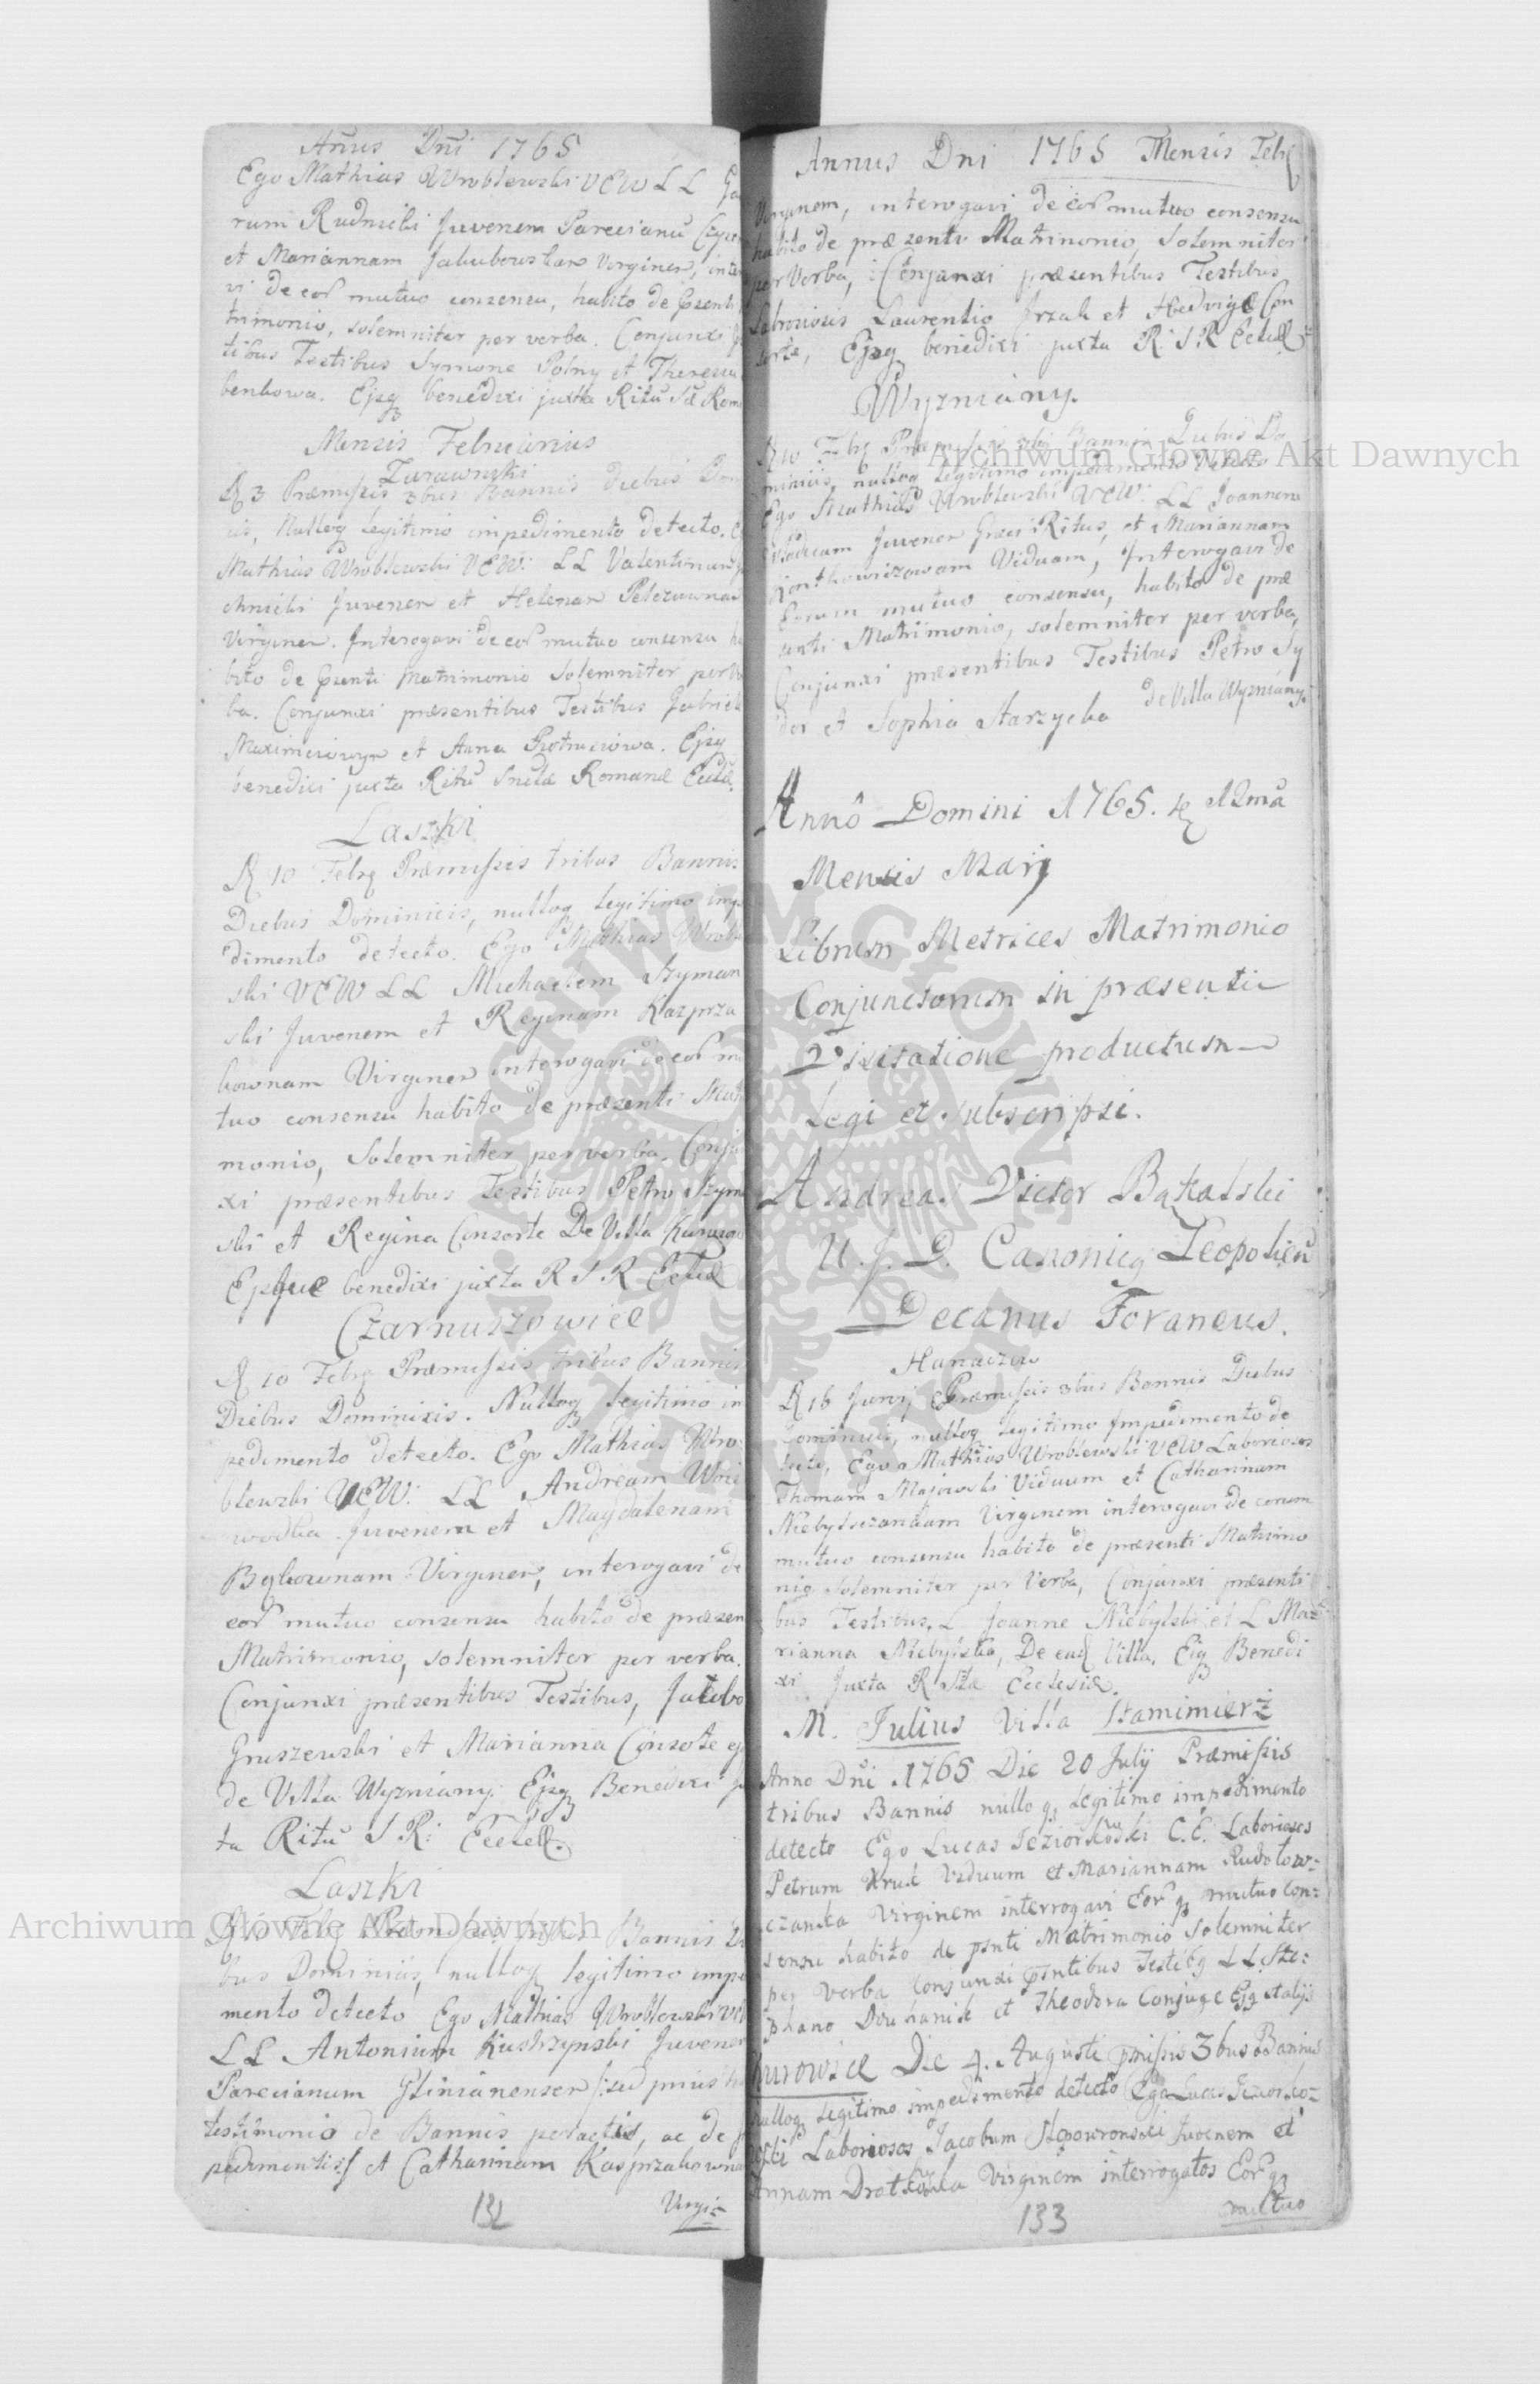 Anus Dni 1765
Ego Mathias Wroblewski VEW LL
rum Rudnicki Juvenem Parecianu
et Mariannam Jakubowskam Virginem,
vi de eor mutuo consensu, habito de
trimonio, solemniter per verba. Conjunxi
tibus Testibus Symone Polny et Theressa
benkowa. Ejsq benedixi juxta Ritu
Mensis Februarius
Zurawniki
3 Præmissis 3bus Bannis Diebus
cis, Nulloq legitimo impedimento detecto.
Mathias Wroblewski VEW: LL Valentinum
chnicki Juvenem et Helenam Pelczownam
Virginem. Interogavi de eor mutuo consensu
bito de Matrimonio Solemniter per
ba. Conjunxi præsentibus Testibus Gabriele
et Anna Piotrusiowa. Ejsq
benedixi juxta Ritu Romanæ
Laszki
10 Præmissis tribus Bannis
Diebus Dominicis, nulloq legitimo impe
dimento detecto. Ego Mathias
ski VEW LL Michaelem Szyman
ski Juvenem et Reginam Kazprza
kownam Virginem interogavi de eor mu
tuo consensu habito de præsenti
monio, Solemniter per verba. Conju
xi præsentibus Testibus Petro
ski et Regina Consorte De Villa
benedixi juxta R S R
Czarnuszowice
10 Præmissis tribus Bannis
Diebus Dominicis. Nulloq legitimo im
pedimento detecto. Ego Mathias Wro
blewski VEW: LL Andream Woie
wodka Juvenem et Magdalenam
Bąkownam Virginem, interogavi de
eor mutuo consensu habito de præsen
Matrimonio, solemniter per verba.
Conjunxi præsentibus Testibus, Jacobo
Gruszewski et Marianna
de Villa Wyzniany. Ejsq Benedixi
ta Ritu S R:
Laszki
10 Præmissis tribus Bannis
bus Dominicis, nulloq legitimo impe
mento detecto Ego Mathias Wroblewski
LL Antonium Kustrzynski Juvenem
Parecianum Glinianensem sed prius
testimonio de Bannis peractis, ac de
pedimentis et Catharinam Kasprzakowna
132 Virgi=
Annus Dni 1765 Mensis
Virginem, interogavi de eor mutuo consensu
habito de præ senti Matrimonio, Solemniter
per Verba, Conjunxi præsentibus Testibus
Laboriosis Laurentio et Hedvige Con
sorte, Ejsq benedixi juxta R S R
Wyzniany.
10 Præmissis 3bus Bannis Diebus Do
minicis, nulloq legitimo impedimento detecto
Ego Mathias Wroblewski VEW: LL Joannem
Juvenem Græci Ritus, et Mariannam
Viduam, Interogavi de
Eorum mutuo consensu, habito de præ
senti Matrimonio, solemniter per verba,
Conjunxi præsentibus Testibus Petro Sy
dor et Sophia Starzycka de Villa Wyzniany.
Annô Domini 1765. 12mâ
Mensis Maij
Librum Metrices Matrimonio
Conjunctorum in præsenti
Visitatione productum
Legi et subscripsi.
Andreas Victor Bąkalski
U. J. D. Canonicq Leopolien
Decanus Foraneus.
Hanaczow
16 Juny Præmissis 3bus Bannis Diebus
Dominicis, nulloq Legitimo Impedimento de
tecto, Ego Mathias Wroblewski VEW Laboriosos
Thomam Majewski Viduum et Catharinam
Virginem interogavi de eorum
mutuo consensu habito de præsenti Matrimo
nio Solemniter per Verba, Conjunxi præsenti
bus Testibus, L Joanne Niebylski et L Ma
rianna Niebylska, De ead Villa. Benedi
xi Juxta R Ecclesiæ.
M. Julius Villa Stanimierz
Anno Dni 1765 Die 20 Julij Præmissis
tribus Bannis nulloq Legitimo impedimento
detecto Ego Lucas Jeziorkoski C.E. Laboriosos
Petrum Kruk Viduum et Mariannam Rudotow=
czanka Virginem interrogavi mutuo con=
sensu habito de psnti Matrimonio Solemniter
per Verba Conjunxi psntibus Testibq LL. Ste:
phano Douhanik et Theodora Conjuge
Kurowice Die 4. Augusti pmissis 3bus Bannis
nulloq Legitimo impedimento detecto Ego Lucas Jeziorko=
ski Laboriosos Jacobum Slopowronski Juvenem et
Annam Virginem interrogatos
133 mutuo
Archiwum Główne Akt Dawnych
Archiwum Główne Akt Dawnych
ARCHIWUM GŁÓWNE AKT DAWNYCH